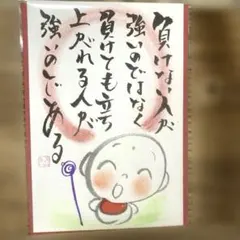 負けない人が
強いのではなく
負けても立ち
上がれる人が
強いのである